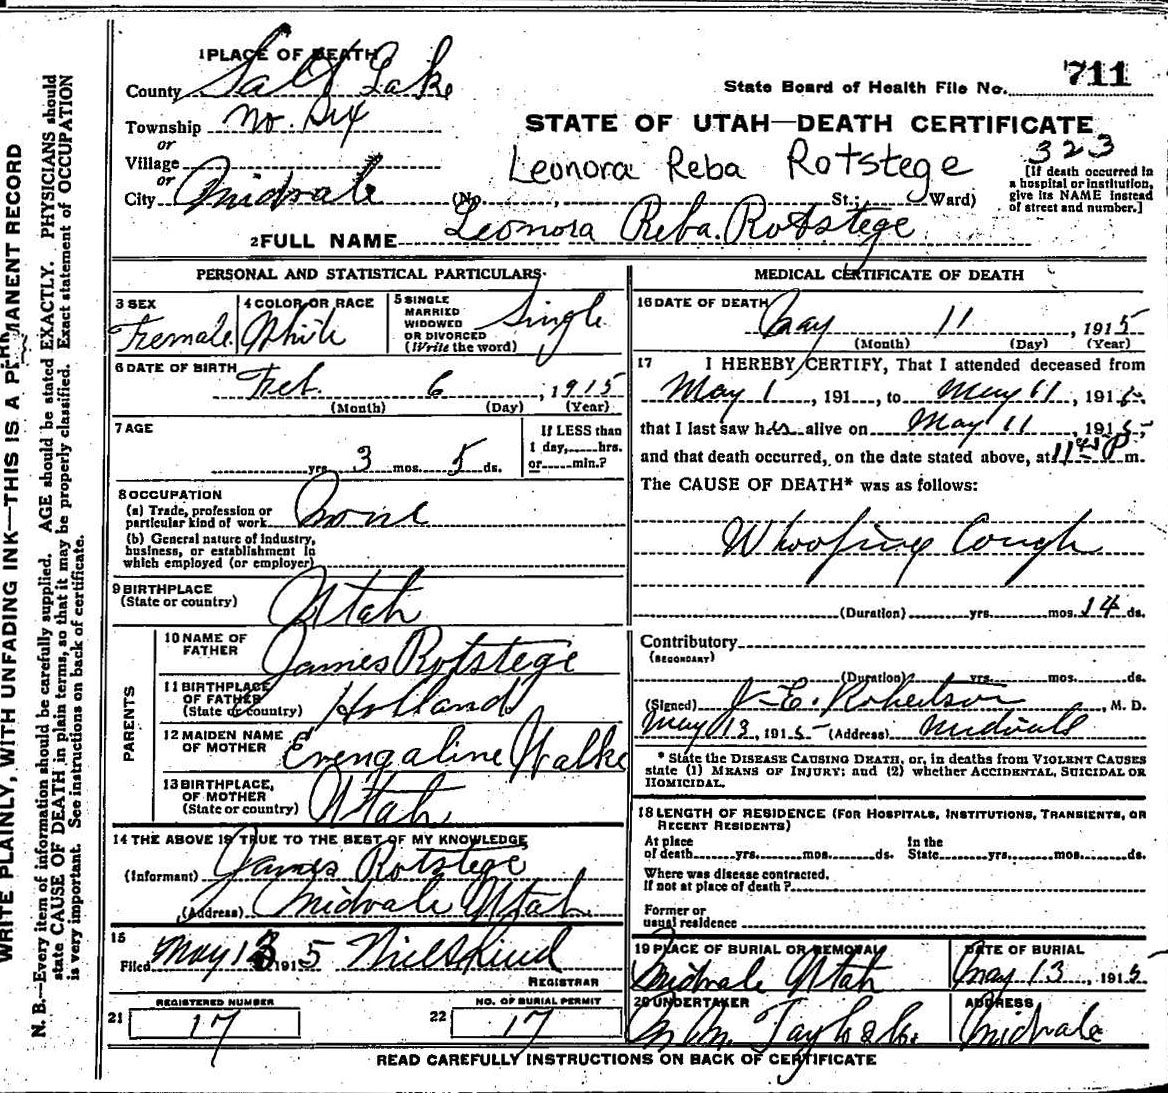 1 PLACE OF DEATH
County Salt Lake
Township No. Six
or
Village
or
City Midvale (No. St.; Ward)
State Board of Health File No. 711
STATE OF UTAH—DEATH CERTIFICATE
323
Leonora Reba Rotstege
[If death occurred in
a hospital or institution,
give its NAME instead
of street and number.]
2 FULL NAME Leonora Reba. Rotstege
PERSONAL AND STATISTICAL PARTICULARS
3 SEX
Female
4 COLOR OR RACE
White
5 SINGLE
MARRIED
WIDOWED
OR DIVORCED
(Write the word)
Single
6 DATE OF BIRTH
Feb. 6, 1915
(Month) (Day) (Year)
7 AGE
yrs. 3 mos. 5 ds.
If LESS than
1 day, hrs.
or min.?
8 OCCUPATION
(a) Trade, profession or
particular kind of work None
(b) General nature of industry,
business, or establishment in
which employed (or employer)
9 BIRTHPLACE
(State or country) Utah
PARENTS
10 NAME OF
FATHER James Rotstege
11 BIRTHPLACE
OF FATHER
(State or country) Holland
12 MAIDEN NAME
OF MOTHER Evengaline Walke
13 BIRTHPLACE,
OF MOTHER
(State or country) Utah
14 THE ABOVE IS TRUE TO THE BEST OF MY KNOWLEDGE,
(Informant) James Rotstege
(Address) Midvale Utah
15
Filed May 13 1915
REGISTRAR
REGISTERED NUMBER
21 17
NO. OF BURIAL PERMIT
22 17
MEDICAL CERTIFICATE OF DEATH
16 DATE OF DEATH
May 11, 1915
(Month) (Day) (Year)
17 I HEREBY CERTIFY, That I attended deceased from
May 1, 191, to May 11, 1915,
that I last saw her alive on May 11, 1915,
and that death occurred, on the date stated above, at 11 45 P m.
The CAUSE OF DEATH* was as follows:
Whooping Cough
(Duration) yrs. mos. 14 ds.
Contributory
(SECONDARY)
(Duration) yrs. mos. ds.
(Signed) J. E. Robertson, M. D.
May 13, 1915 (Address) Midvale
* State the DISEASE CAUSING DEATH, or, in deaths from VIOLENT CAUSES
state (1) MEANS OF INJURY; and (2) whether ACCIDENTAL, SUICIDAL OR
HOMICIDAL.
18 LENGTH OF RESIDENCE (FOR HOSPITALS, INSTITUTIONS, TRANSIENTS, OR
RECENT RESIDENTS)
At place
of death yrs. mos. ds.
In the
State yrs. mos. ds.
Where was disease contracted,
If not at place of death?
Former or
usual residence
19 PLACE OF BURIAL OR REMOVAL
Midvale Utah
DATE OF BURIAL
May 13, 1915
20 UNDERTAKER
ADDRESS
Midvale
READ CAREFULLY INSTRUCTIONS ON BACK OF CERTIFICATE
WRITE PLAINLY, WITH UNFADING INK—THIS IS A PERMANENT RECORD
N. B.—Every item of information should be carefully supplied. AGE should be stated EXACTLY. PHYSICIANS should
state CAUSE OF DEATH in plain terms, so that it may be properly classified. Exact statement of OCCUPATION
is very important. See instructions on back of certificate.